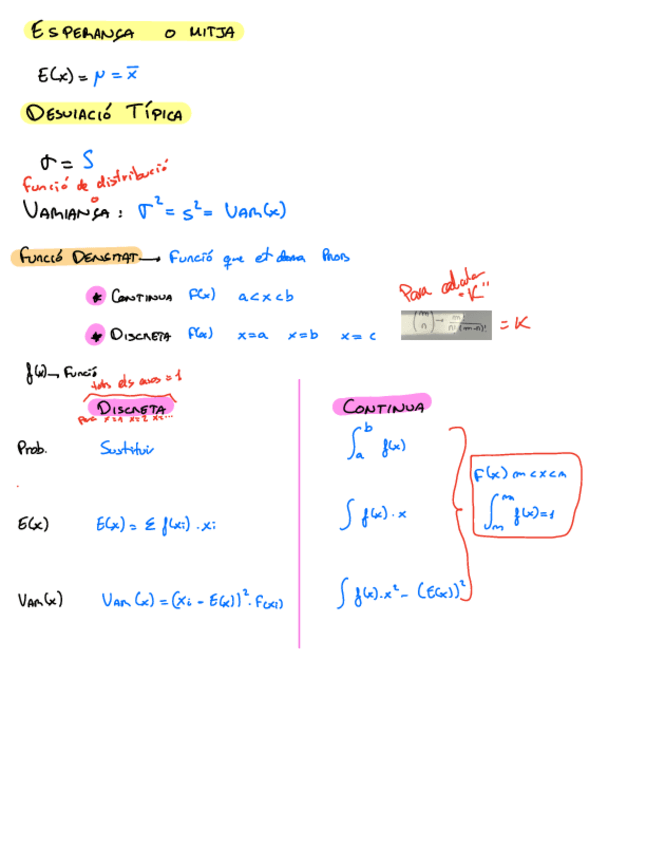 ESPERANÇA O MITJA
E(x) = μ = x̄
DESVIACIÓ TÍPICA
σ = S
Funció de distribució
o
VARIANÇA: σ² = s² = VAR(x)
FUNCIÓ DENSITAT → Funció que et dona Probs
* CONTINUA F(x) a<x<b
Para calcular "K"
* DISCRETA F(x) x=a x=b x=c
(m n) → m! / n!(m-n)! = K
f(x) → Funció
tots els casos = 1
DISCRETA
Para x=1 x=2 x=...
CONTINUA
Prob. Sustituir
∫ₐᵇ f(x)
F(x) m<x<n
E(x) E(x) = Σ f(xi) · xi
∫ f(x) · x
f(x)=1
VAR(x) VAR(x) = (xi - E(x))² · F(xi)
∫ f(x) · x² - (E(x))²